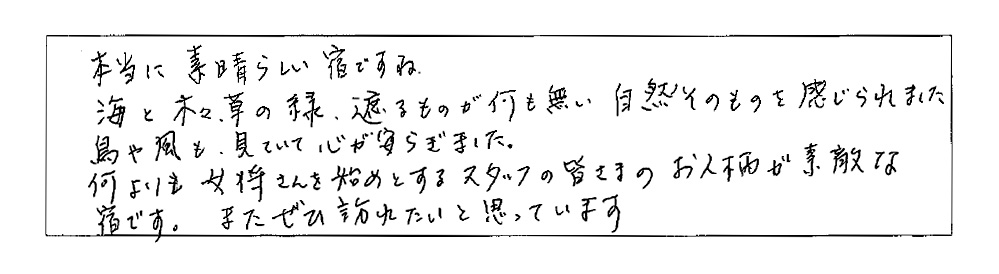 本当に素晴らしい宿ですね
海と木々、草の緑、遮るものが何も無い自然そのものを感じられました
鳥や風も、見ていて心が安らぎました。
何よりも女将さんを始めとするスタッフの皆さまのお人柄が素敵な
宿です。またぜひ訪れたいと思っています